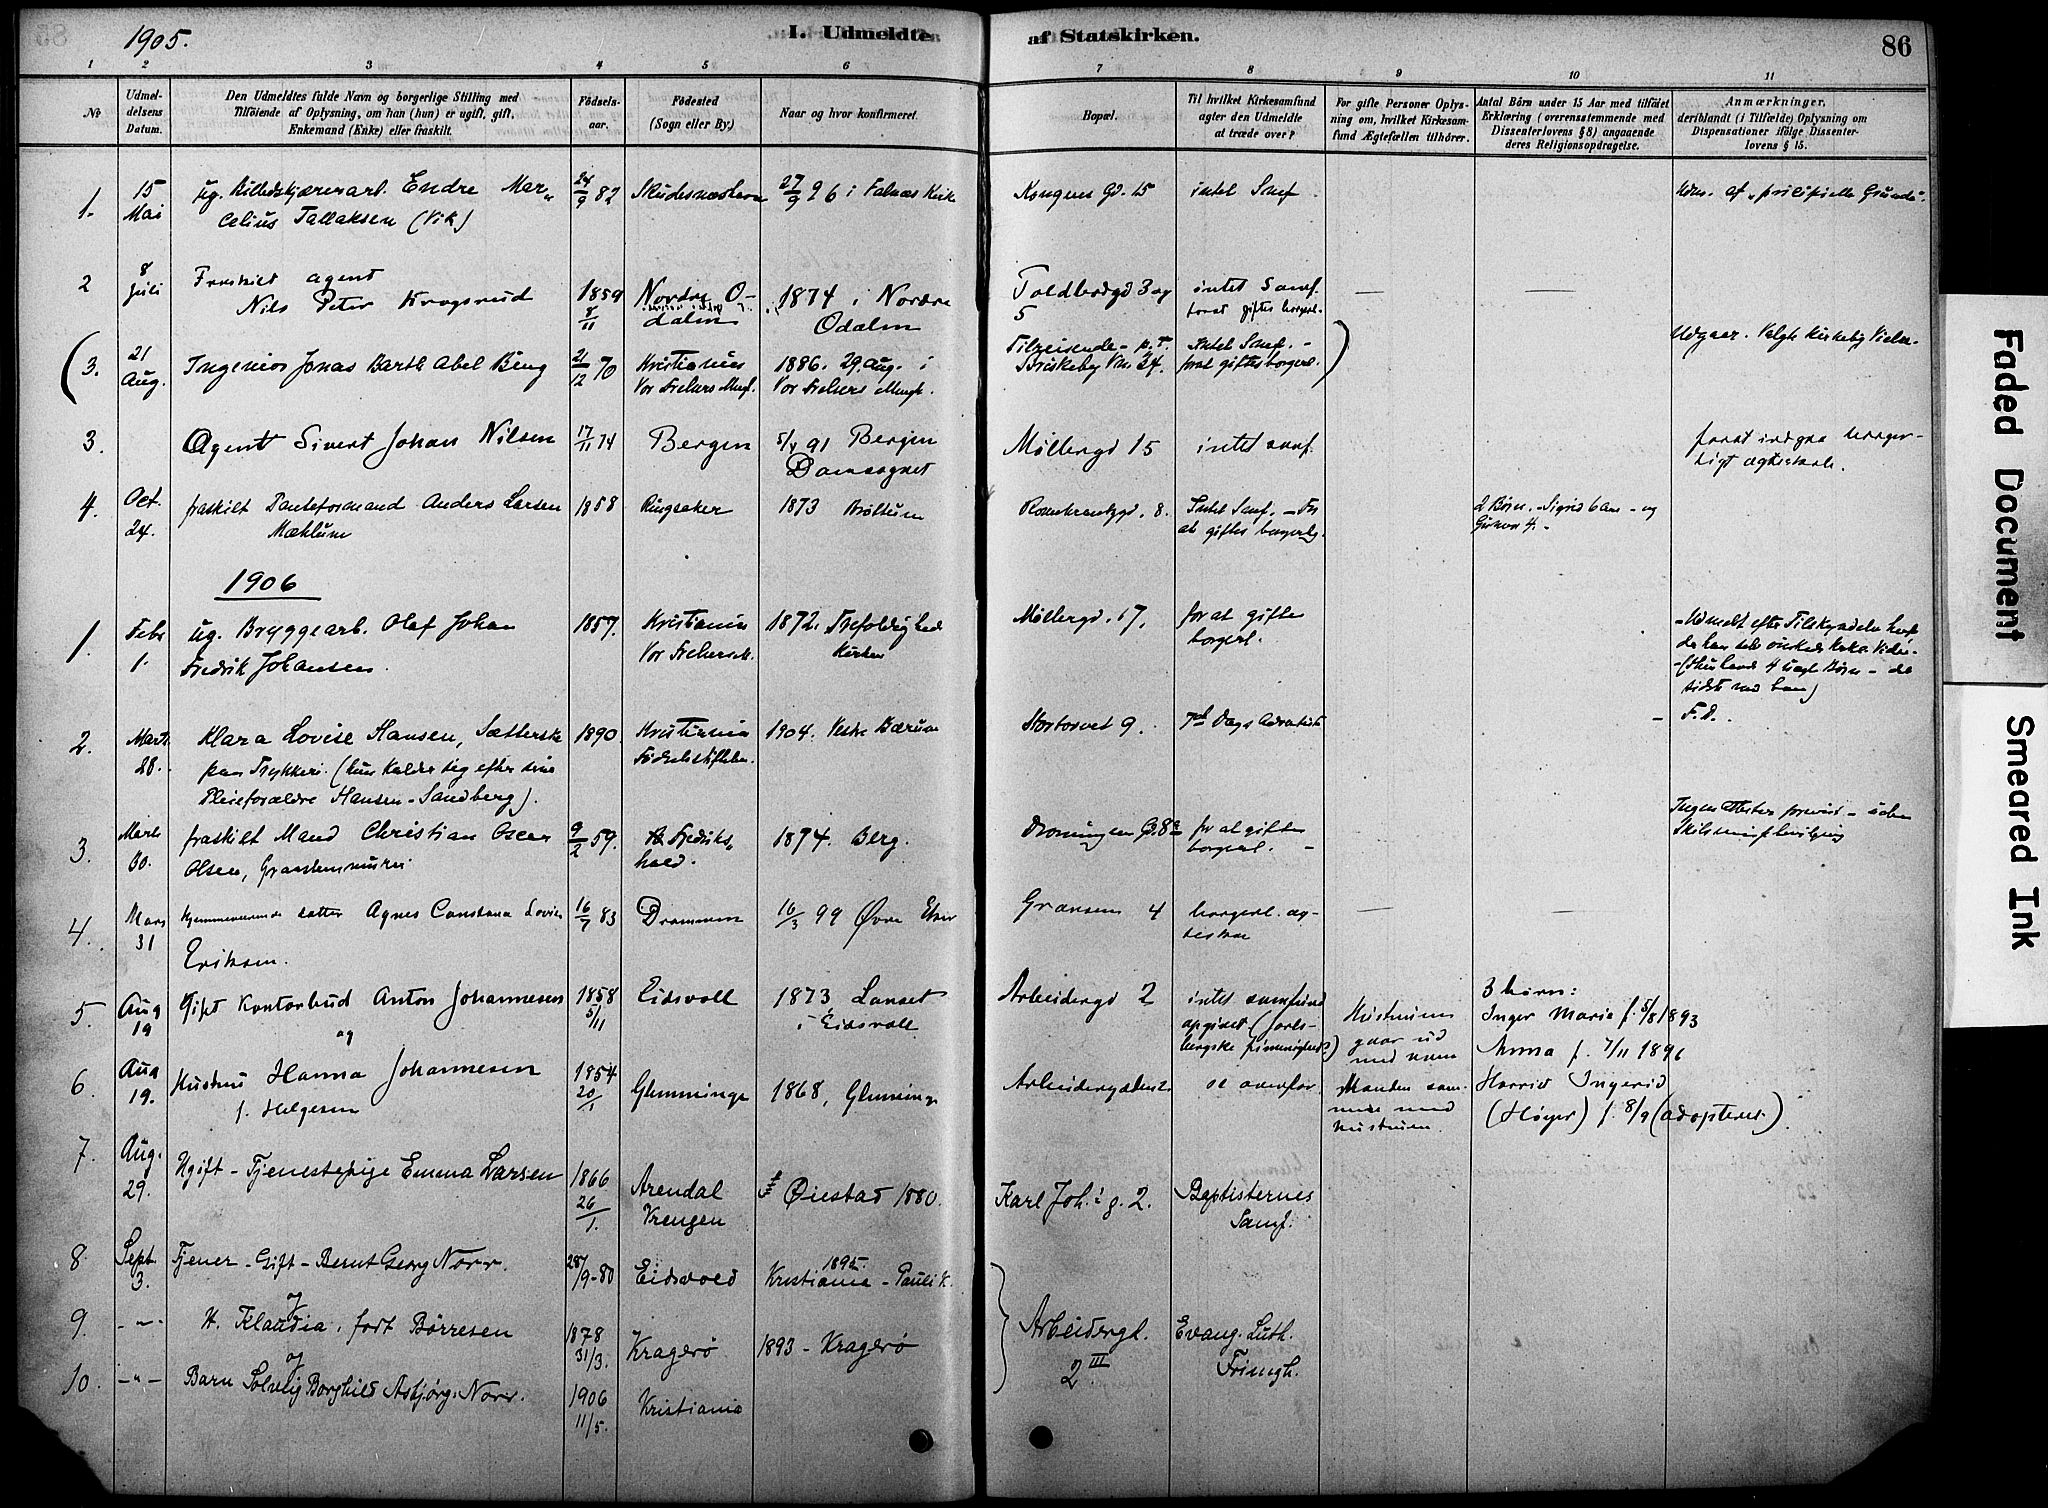 1905.
I. Udmeldte
af Statskirken.
86
1 2 3 4 5 6 7 8 9 10 11
No
Udmeldelsens Datum.
Den Udmeldtes fulde Navn og borgerlige Stilling med
Tilføiende af Oplysning, om han (hun) er ugift, gift,
Enkemand (Enke) eller fraskilt.
Fødselsaar.
Fødested
(Sogn eller By.)
Naar og hvor konfirmeret.
Bopæl.
Til hvilket Kirkesamfund
agter den Udmeldte
at træde over?
For gifte Personer Oplys-
ning om, hvilket Kirkesam-
fund Ægtefællen tilhører.
Antal Børn under 15 Aar med tilføiet
Erklæring (overensstemmende med
Dissenterlovens § 8) angaaende
deres Religionsopdragelse.
Anmærkninger,
deriblandt (i Tilfælde) Oplysning om
Dispensationer ifølge Dissenter-
lovens § 15.
1. 15 Mai ug. Billedskjærerarb. Endre Mar-
celius Tallaksen (Vik)
24/9 82 27/9 96 i Falnæs Kirke
Kongens Gd. 15 intet Samf
Udm. af
2 8 Juli Fraskilt agent
Nils Peter Krogsrud
1859 8/11 Nordre O-
dalen
1874 i Nordre
Odalen
Toldbodgd 3 og
5
intet Samf.
borgerl.
(3. 21 Aug. Ingeniør Jonas Barth Abel Bing
21/12 70 Kristiania
Vor Frelsers Mengh.
1886. 29 Aug. i
Vor Frelsers Mengh.
Tilreisende - p.t.
Briskeby Vn. 24.
Intet Samf. -
giftes borgerl. )
Udgaar. Valgte Kirkelig Vielse
3. Agent Sivert Johan Nilsen
17/11 74 Bergen
5/4 91 Bergen
Domsognet
Møllergd 15 intet samf.
forat indgaa borger-
ligt ægteskab.
4. Oct. 24. fraskilt Anders Larsen
Mæhlum
1858 Ringsaker 1873 Brøttum
Rosenkrantzgd. 8. Intet Samf. - For
at giftes borgerlig.
2 Børn. - Sigrid 6 Aar - og
4. -
1906
1. Febr 1. ug. Bryggearb. Olaf Johan
Fredrik Johansen.
1857. Kristiania
Vor Frelsers M.
1872. Trefoldighed
Kirken
Møllergd. 17. for at gifte
borgerl.
- Udmeldt efter
4 Børn - de
sidste med ham)
2. Marts 28. Klara Lovise Hansen, Sætterske
paa Trykkeri. (hun kalder sig efter sine
Pleieforældre Hansen-Sandberg).
1890. Kristiania
Fødselsstiftelsen.
1904. Vestre Bærum
Stortorvet 9. 7de Dags Adventist
- F.D.
3. Marts 30. fraskilt Mand Christian Oscar
Olsen,
9/2 59. Fredriks-
hald.
1874. Berg.
for at gifte
borgerl. -
4. Mars 31 Hjemmeværende datter Agnes Constance Lovise
Eriksen.
16/7 83 Drammen
16/3 99 Øvre Eker
Grænsen 4 borgerl. æg-
teskab
5. Aug 19 Gift Kontorbud Anton Johannesen
og
1858 5/11 Eidsvoll
1873, Langset
i Eidsvoll
Arbeidergd 2
intet samfund
opgivet (Jarls-
bergske frimenighed?)
Hustruen
gaar ud
med ham
3 børn:
Inger Marie f. 5/8 1893
Anna f. 7/11 1896
6. Aug 19. Hustru Hanna Johannesen
f. Helgesen
1854 20/1 Glemminge
1868, Glemminge
Arbeidergaden 2. se ovenfor.
Manden sam-
men med
hustruen.
Harriet Ingerid
(Høyer) f. 8/9 (adopteret.)
7. Aug. 29. Ugift - Tjenestepige Emma Larsen
1866 26/1. Arendal
Vrengen
Øiestad 1880.
Karl Joh.s g. 2. Baptisternes
Samf.
8. Sept. 3. Tjener - Gift - Bernt Georg Norr.
og
28/9-80 Eidsvold
1895.
Kristiania - Pauli K.
9. -"- H. Klaudia, født Børresen
og
1878 31/3. Kragerø 1893 - Kragerø
Arbeidergt.
2 III
Evang. Luth.
Frimgh.
10. -"- Barn Solveig Borghild Asbjørg Norr.
1906 11/5. Kristiania
Faded Document
Smeared Ink